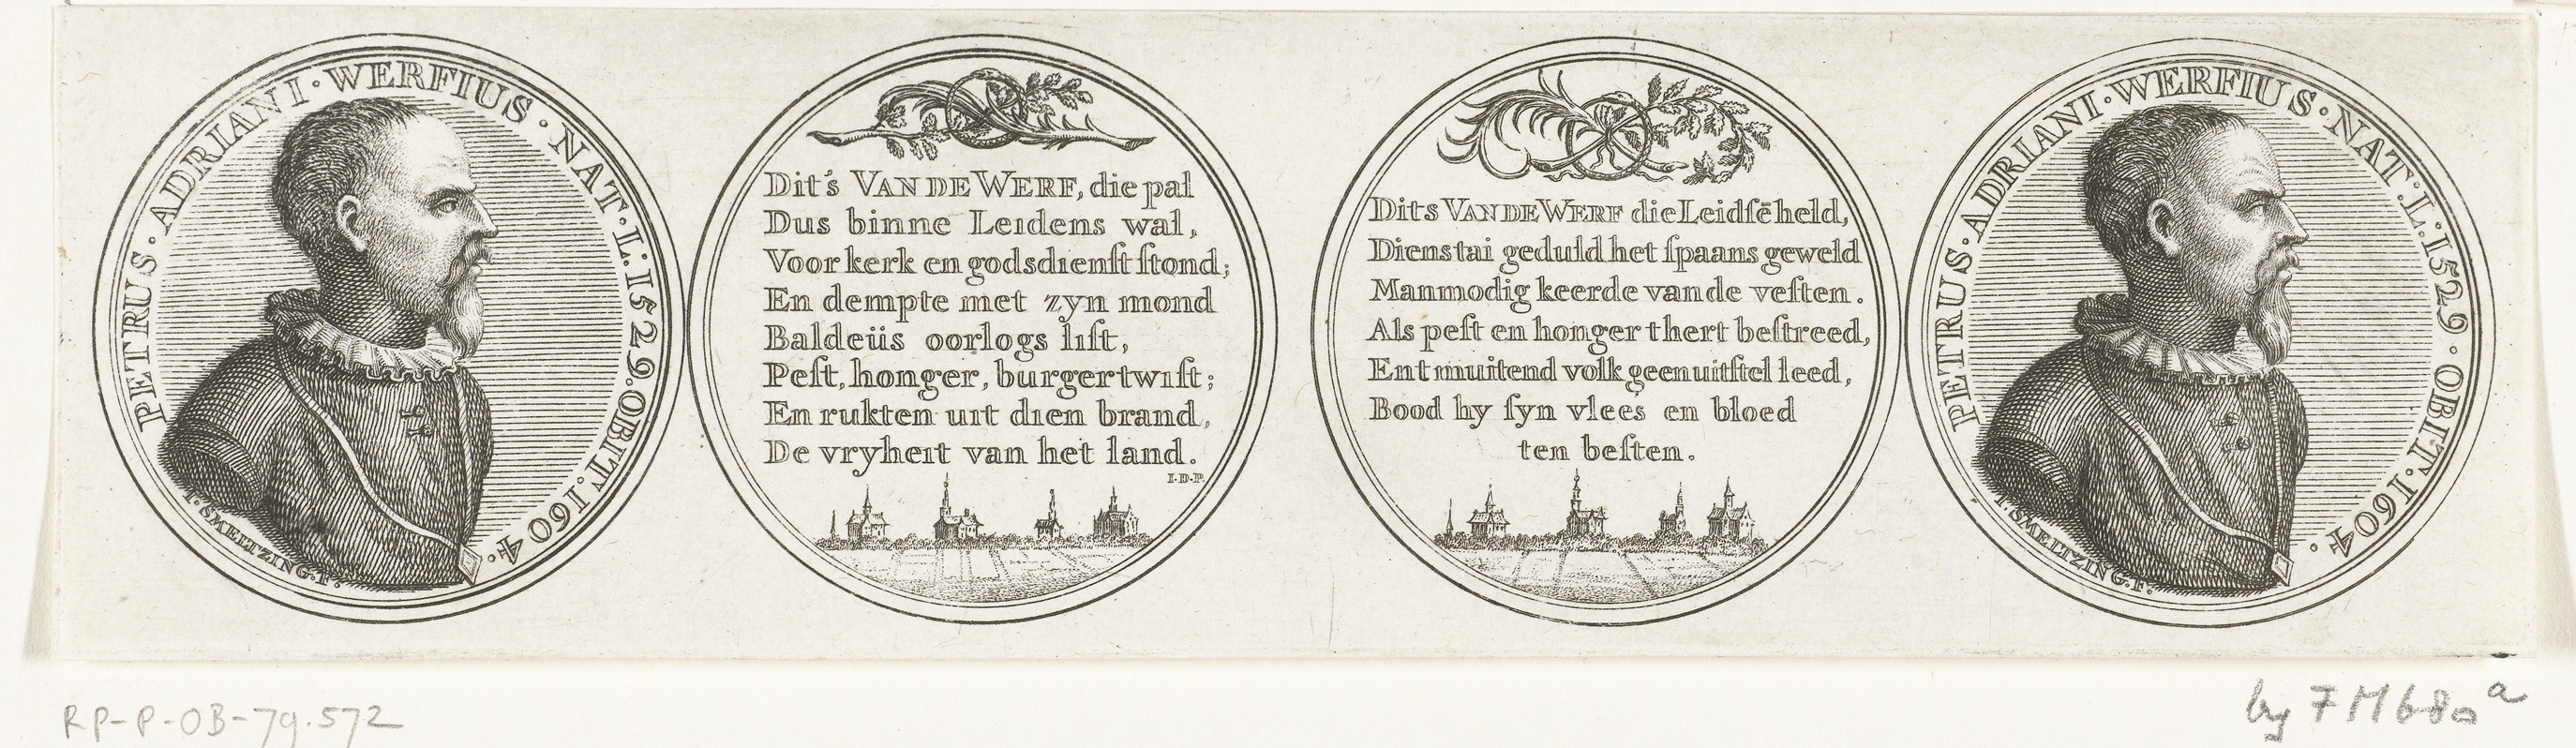 PETRUS · ADRIANI · WERFIUS · NAT · L : 1529 · OBIIT · 1604 ·
I · SMELTZING · F :
Dit's VAN DE WERF, die pal
Dus binne Leidens wal,
Voor kerk en godsdienſt ſtond;
En dempte met zyn mond
Baldeüs oorlogs liſt,
Peſt, honger, burgertwiſt;
En rukten uit dien brand,
De vryheit van het land.
I·D·P.
Dits VAN DE WERF die Leidſēheld,
Diens tai geduld het ſpaans geweld
Manmodig keerde van de veſten.
Als peſt en honger thert beſtreed,
Ent muitend volk geen uitſtel leed,
Bood hy ſyn vlees en bloed
ten beſten.
PETRUS · ADRIANI · WERFIUS · NAT · L : 1529 · OBIIT · 1604 ·
I · SMELTZING · F :
RP-P-OB-79.572
by FM680a